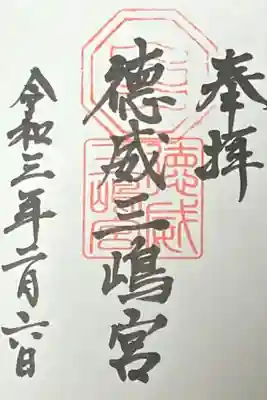 奉拝
徳威三嶋宮
徳威三嶋宮
令和三年二月六日